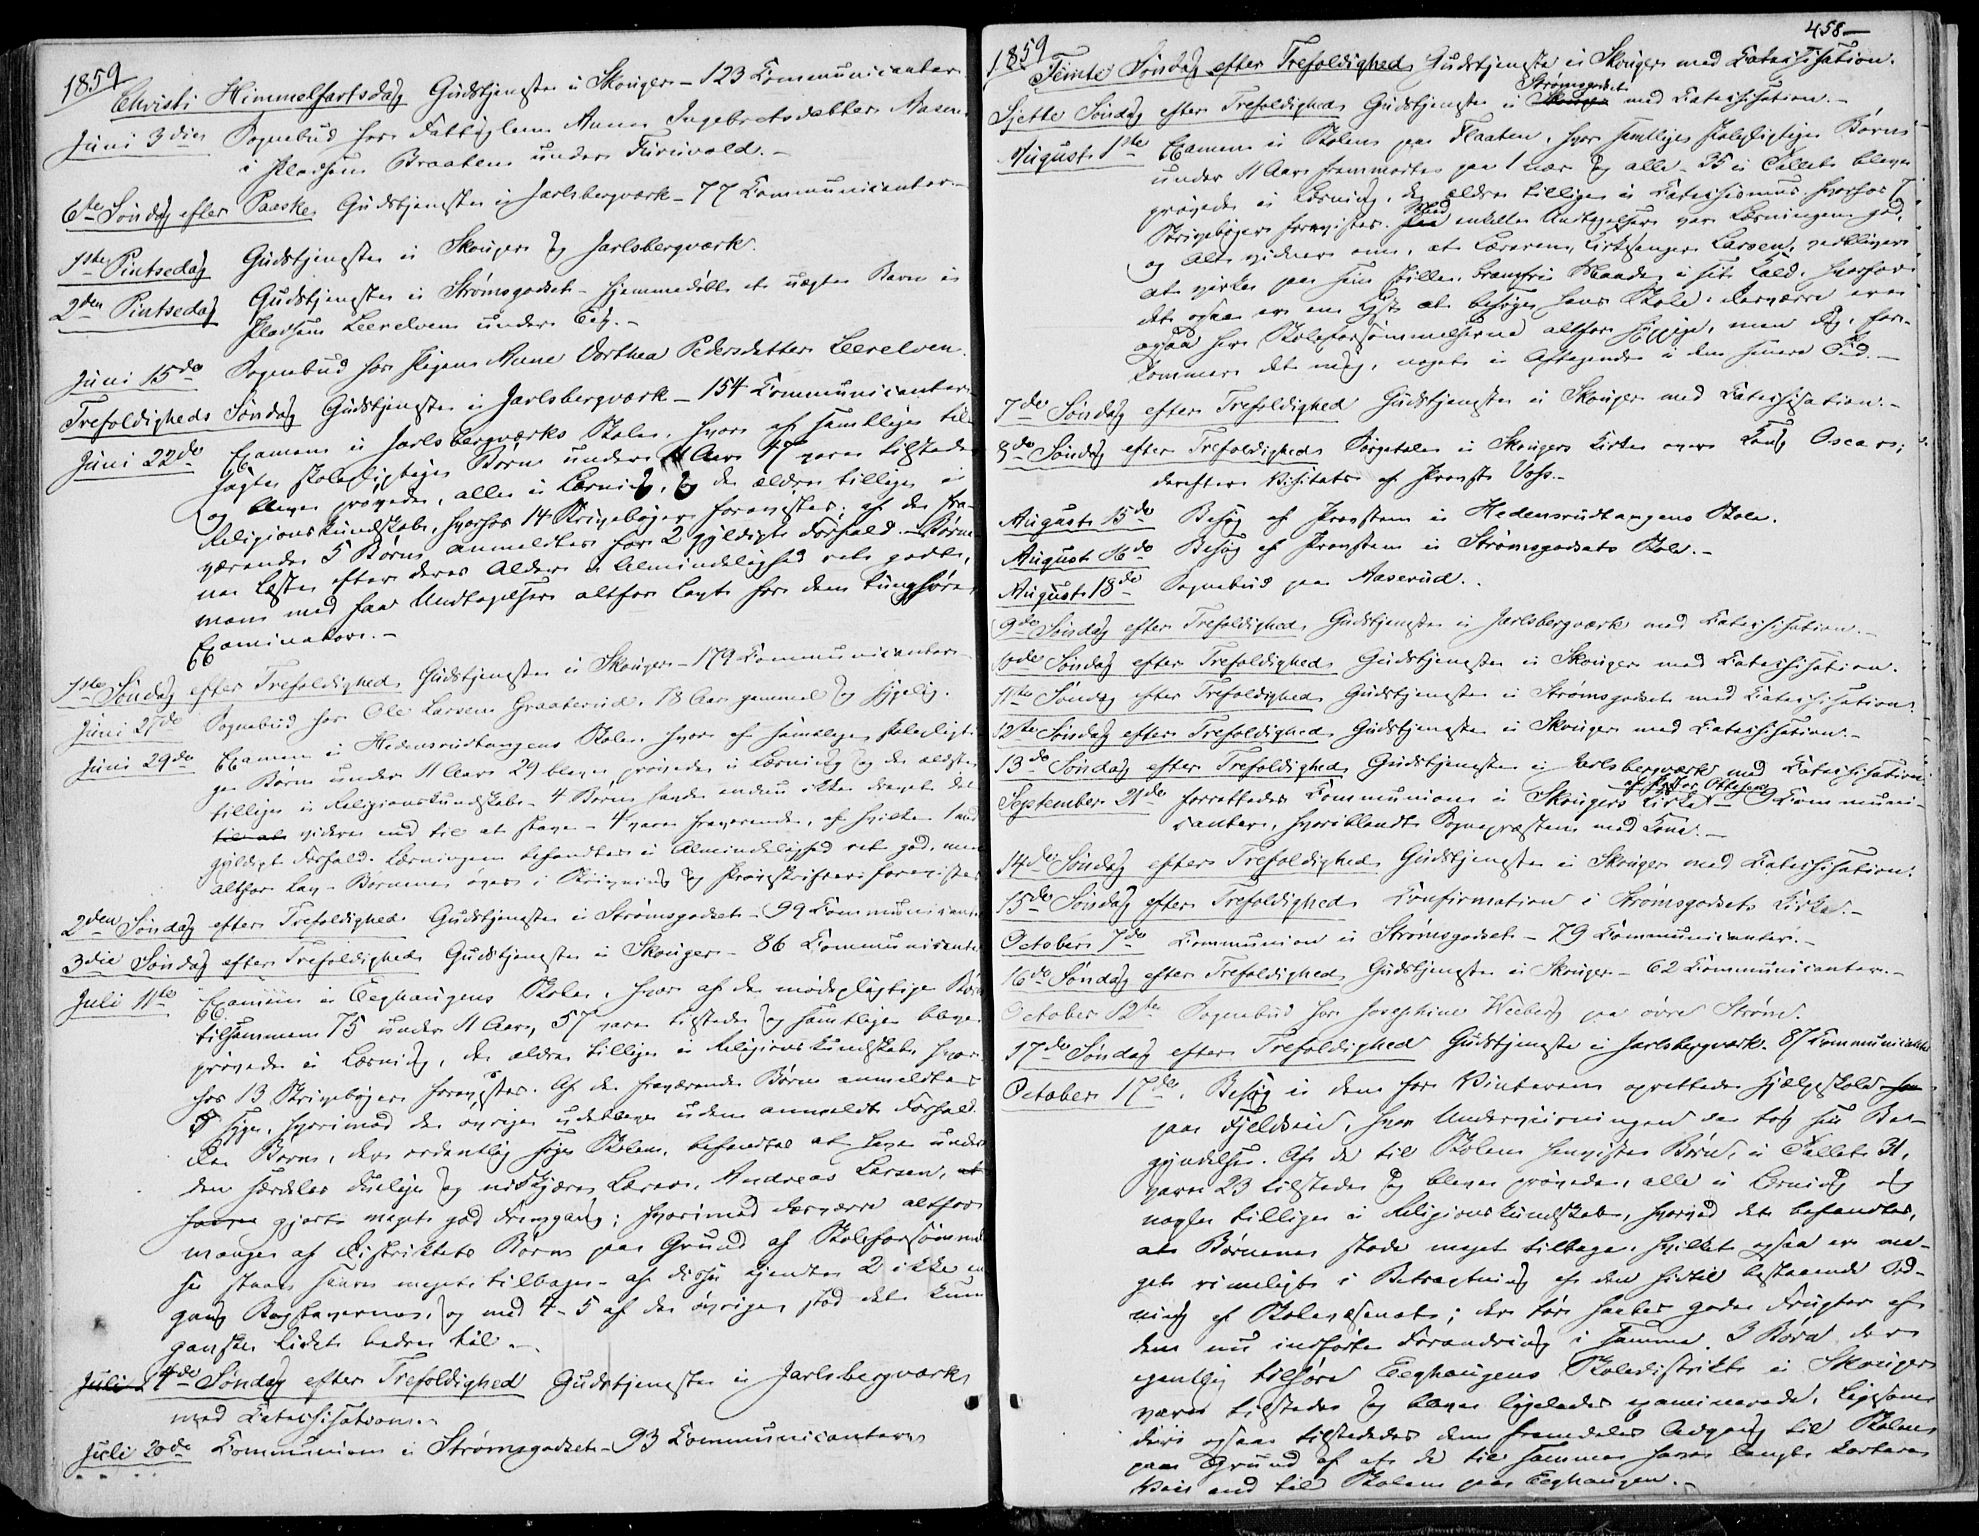 1859
Christi Himmelfartsdag Gudstjeneste i Skouger – 123 Communicanter.
Juni 3die Sognebud hos Fattiglem Anne Ingebretsdatter Aasen
i Pladsen Braaten under Furuvald. –
6te Søndag efter Paaske Gudstjeneste i Jarlsbergværk – 77 Communicanter. –
1ste Pintsedag Gudstjeneste i Skouger og Jarlsbergværk.
2den Pintsedag Gudstjeneste i Strømsgodset – hjemmedøbt et uægte Barn i
Pladsen Leerelven under
Juni 15de Sognebud hos Pigen Anne Dorthea Pedersdatter Leerelven.
Trefoldigheds Søndag Gudstjeneste i Jarlsbergværk – 154 Communicanter
Juni 22de Examen i Jarlsbergværks Skole, hvor af samtlige til
skolepligtige Børn under 11 Aar 47 vare tilstede
og bleve prøvede, alle i Læsning, og de ældre tillige i
Religionskundskab, hvorhos 14 Skrivebøger forevistes; af de fra-
værende 5 Børn anmeldtes for 2 gyldigt Forfald. – Børne-
ne læste efter deres Alder i Almindelighed ret godt,
men med faa Undtagelser altfor lavt for den tunghøre
Examinator. –
1ste Søndag efter Trefoldighed Gudstjeneste i Skouger – 179 Communicanter –
Juni 27de Sognebud hos Ole Larsen Graaterud, 78 Aar gammel og sygelig.
Juni 29de Examen i Hedensrudtangens Skole, hvor af samtlige skolepligti-
ge Børn under 11 Aar 29 bleve prøvede i Læsning og de ældste
tillige i Religionskundskab – 4 Børn havde endnu ikke drevet det
til at videre end til at stave – 4 vare fraværende, af hvilke 1 med
gyldigt Forfald. Læsningen befandtes i Almindelighed ret god, men
altfor lav – Børnenes øvede i Skrivning og Prøveskrifter forevistes
2den Søndag efter Trefoldighed Gudstjeneste i Strømsgodset – 99 Communicanter
3die Søndag efter Trefoldighed Gudstjeneste i Skouger – 86 Communicanter
Juli 11te Examen i Eeghaugens Skole, hvor af de mødepligtige Børn
tilsammen 75 under 11 Aar, 57 vare tilstede og samtlige bleve
prøvede i Læsning, de ældre tillige i Religionskundskab, hvor-
hos 13 Skrivebøger forevistes. Af de fraværende Børn anmeldtes
syge, hvorimod de øvrige udebleve uden anmeldt Forfald.
De Børn, der ordentlig søge Skolen, befandtes at have under
den særdeles duelige og nidkjære Lærer, Andreas Larsen, at
havre gjort meget god Fremgang; hvorimod desværre altfor
mange af Distriktets Børn paa Grund af Skoleforsømmel-
se staae saare meget tilbage – af disse kjendte 2 ikke en-
gang Bogstaverne, og med 4–5 af de øvrige stod det kun
ganske lidet bedre til. –
Juli 4de Søndag efter Trefoldighed Gudstjeneste i Jarlsbergværk
med Katechisation. –
Juli 20de Communion i Strømsgodset – 93 Communicanter
458 –
1859
Femte Søndag efter Trefoldighed Gudstjeneste i Skouger med Katechisation.
Strømsgodset
Sjette Søndag efter Trefoldighed Gudstjeneste i Skouger med Katechisation. –
August 1ste Examen i Skolen paa Flaaten, hvor samtlige skolepligtige Børn
under 11 Aar fremmødte paa 1 nær og alle – 35 i Tallet bleve
prøvede i Læsning, de ældre tillige i Katechismus, hvorhos 7
Skrivebøger forevistes. Med faa enkelte Undtagelser var Læsningen god,
og Alt vidner om, at Læreren, Kirkesanger Larsen, vedbliver
at virke paa sin stille, Maade i sit Kald, hvorfor
det ogsaa er en Lyst at besøge hans Skole; desværre ere
ogsaa her Skoleforsømmelserne altfor hyppige, men dog, fore-
kommer det mig, noget i Aftagende i den senere Tid. –
7de Søndag efter Trefoldighed Gudstjeneste i Skouger med Katechisation. –
8de Søndag efter Trefoldighed Sørgetale i Skougers Kirke over Kong Oscar I;
derefter Visitats af Provst Voss. –
August 15de Besøg af Provsten i Hedensrudtangens Skole.
August 16de Besøg af Provsten i Strømsgodsets Skole. –
August 18de Sognebud paa Aaserud.
9de Søndag efter Trefoldighed Gudstjeneste i Jarlsbergværk med Katechisation. –
10de Søndag efter Trefoldighed Gudstjeneste i Skouger med Katechisation.
11te Søndag efter Trefoldighed Gudstjeneste i Strømsgodset med Katechisation.
12te Søndag efter Trefoldighed Gudstjeneste i Skouger med Katechisation. –
13de Søndag efter Trefoldighed Gudstjeneste i Jarlsbergværk med Katechisation.
af Pastor Ottesen
September 21de forrettedes Communion i Skougers Kirke – 9 Communi-
canter, hvoriblandt Sognepræsten med Kone. –
14de Søndag efter Trefoldighed Gudstjeneste i Skouger med Katechisation.
15de Søndag efter Trefoldighed Confirmation i Strømsgodsets Kirke. –
October 7de Communion i Strømsgodset – 79 Communicanter. –
16de Søndag efter Trefoldighed Gudstjeneste i Skouger – 62 Communicanter. –
October 12te Sognebud hos Josephine Weeberg paa øvre Strøm.
17de Søndag efter Trefoldighed Gudstjeneste i Jarlsbergværk. 87 Communicanter
October 17de. Besøg i den for Vinteren oprettede Hjælpeskole
paa Fjeldseie, hvor Underviisningen da tog sin Be-
gyndelse. Af de til Skolen henviste Børn, i Tallet 31,
vare 23 tilstede og bleve prøvede, alle i Læsning og
nogle tillige i Religionskundskab, hvorved det befandtes,
at Børnene stode meget tilbage, hvilket ogsaa er me-
get rimeligt i Betragtning af den hidtil bestaaende Ord-
ning af Skolevæsenet; der tør haabes gode Frugter af
den nu indførte Forandring i samme. 3 Børn, der
egentlig tilhøre Eeghaugens Skoledistrikt i Skouger
vare tilstede og bleve ligeledes examinerede, ligesom
der ogsaa tilstededes dem fremdeles Adgang til Skolen
paa Grund af at de til samme have langt kortere
Vei end til Skolen paa Eeghaugen. –